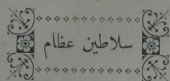 سلاطين عظام